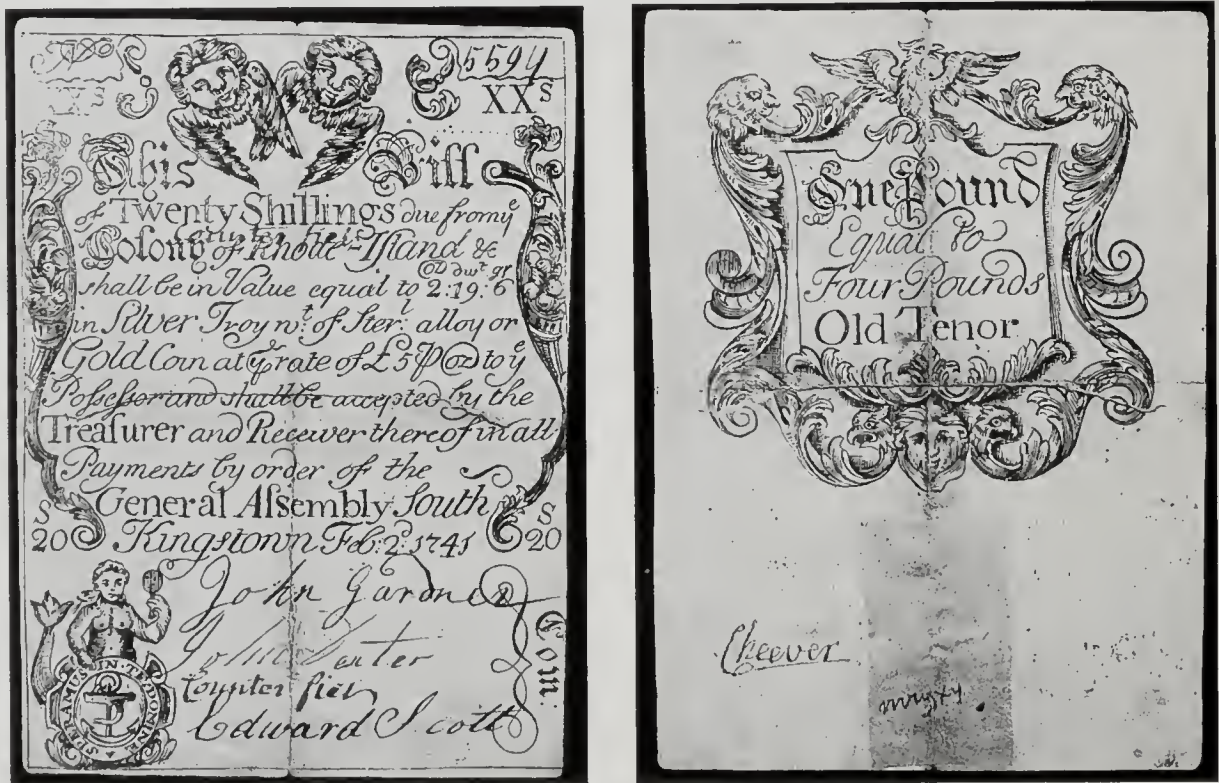 No 5594
XXs XXS
This Bill
of Twenty Shillings due from ye
Counter Feit
Colony of Rhode-Island &c
oz dwt gr
shall be in Value equal to 2:19:6
in Silver Troy wt. of Sterl. alloy or
Gold Coin at ye rate of £5 ℔ oz to ye
Possessor and shall be accepted by the
Treasurer and Receiver thereof in all
Payments by order of the
General Assembly South
Kingstown Feb: 2d: 1741
S 20 S 20
John Gardner
John
Counter fiet
Edward Scott
Com:
SPERAMUS·IN·TE·DOMINE
One Pound
Equal to
Four Pounds
Old Tenor
Cheever